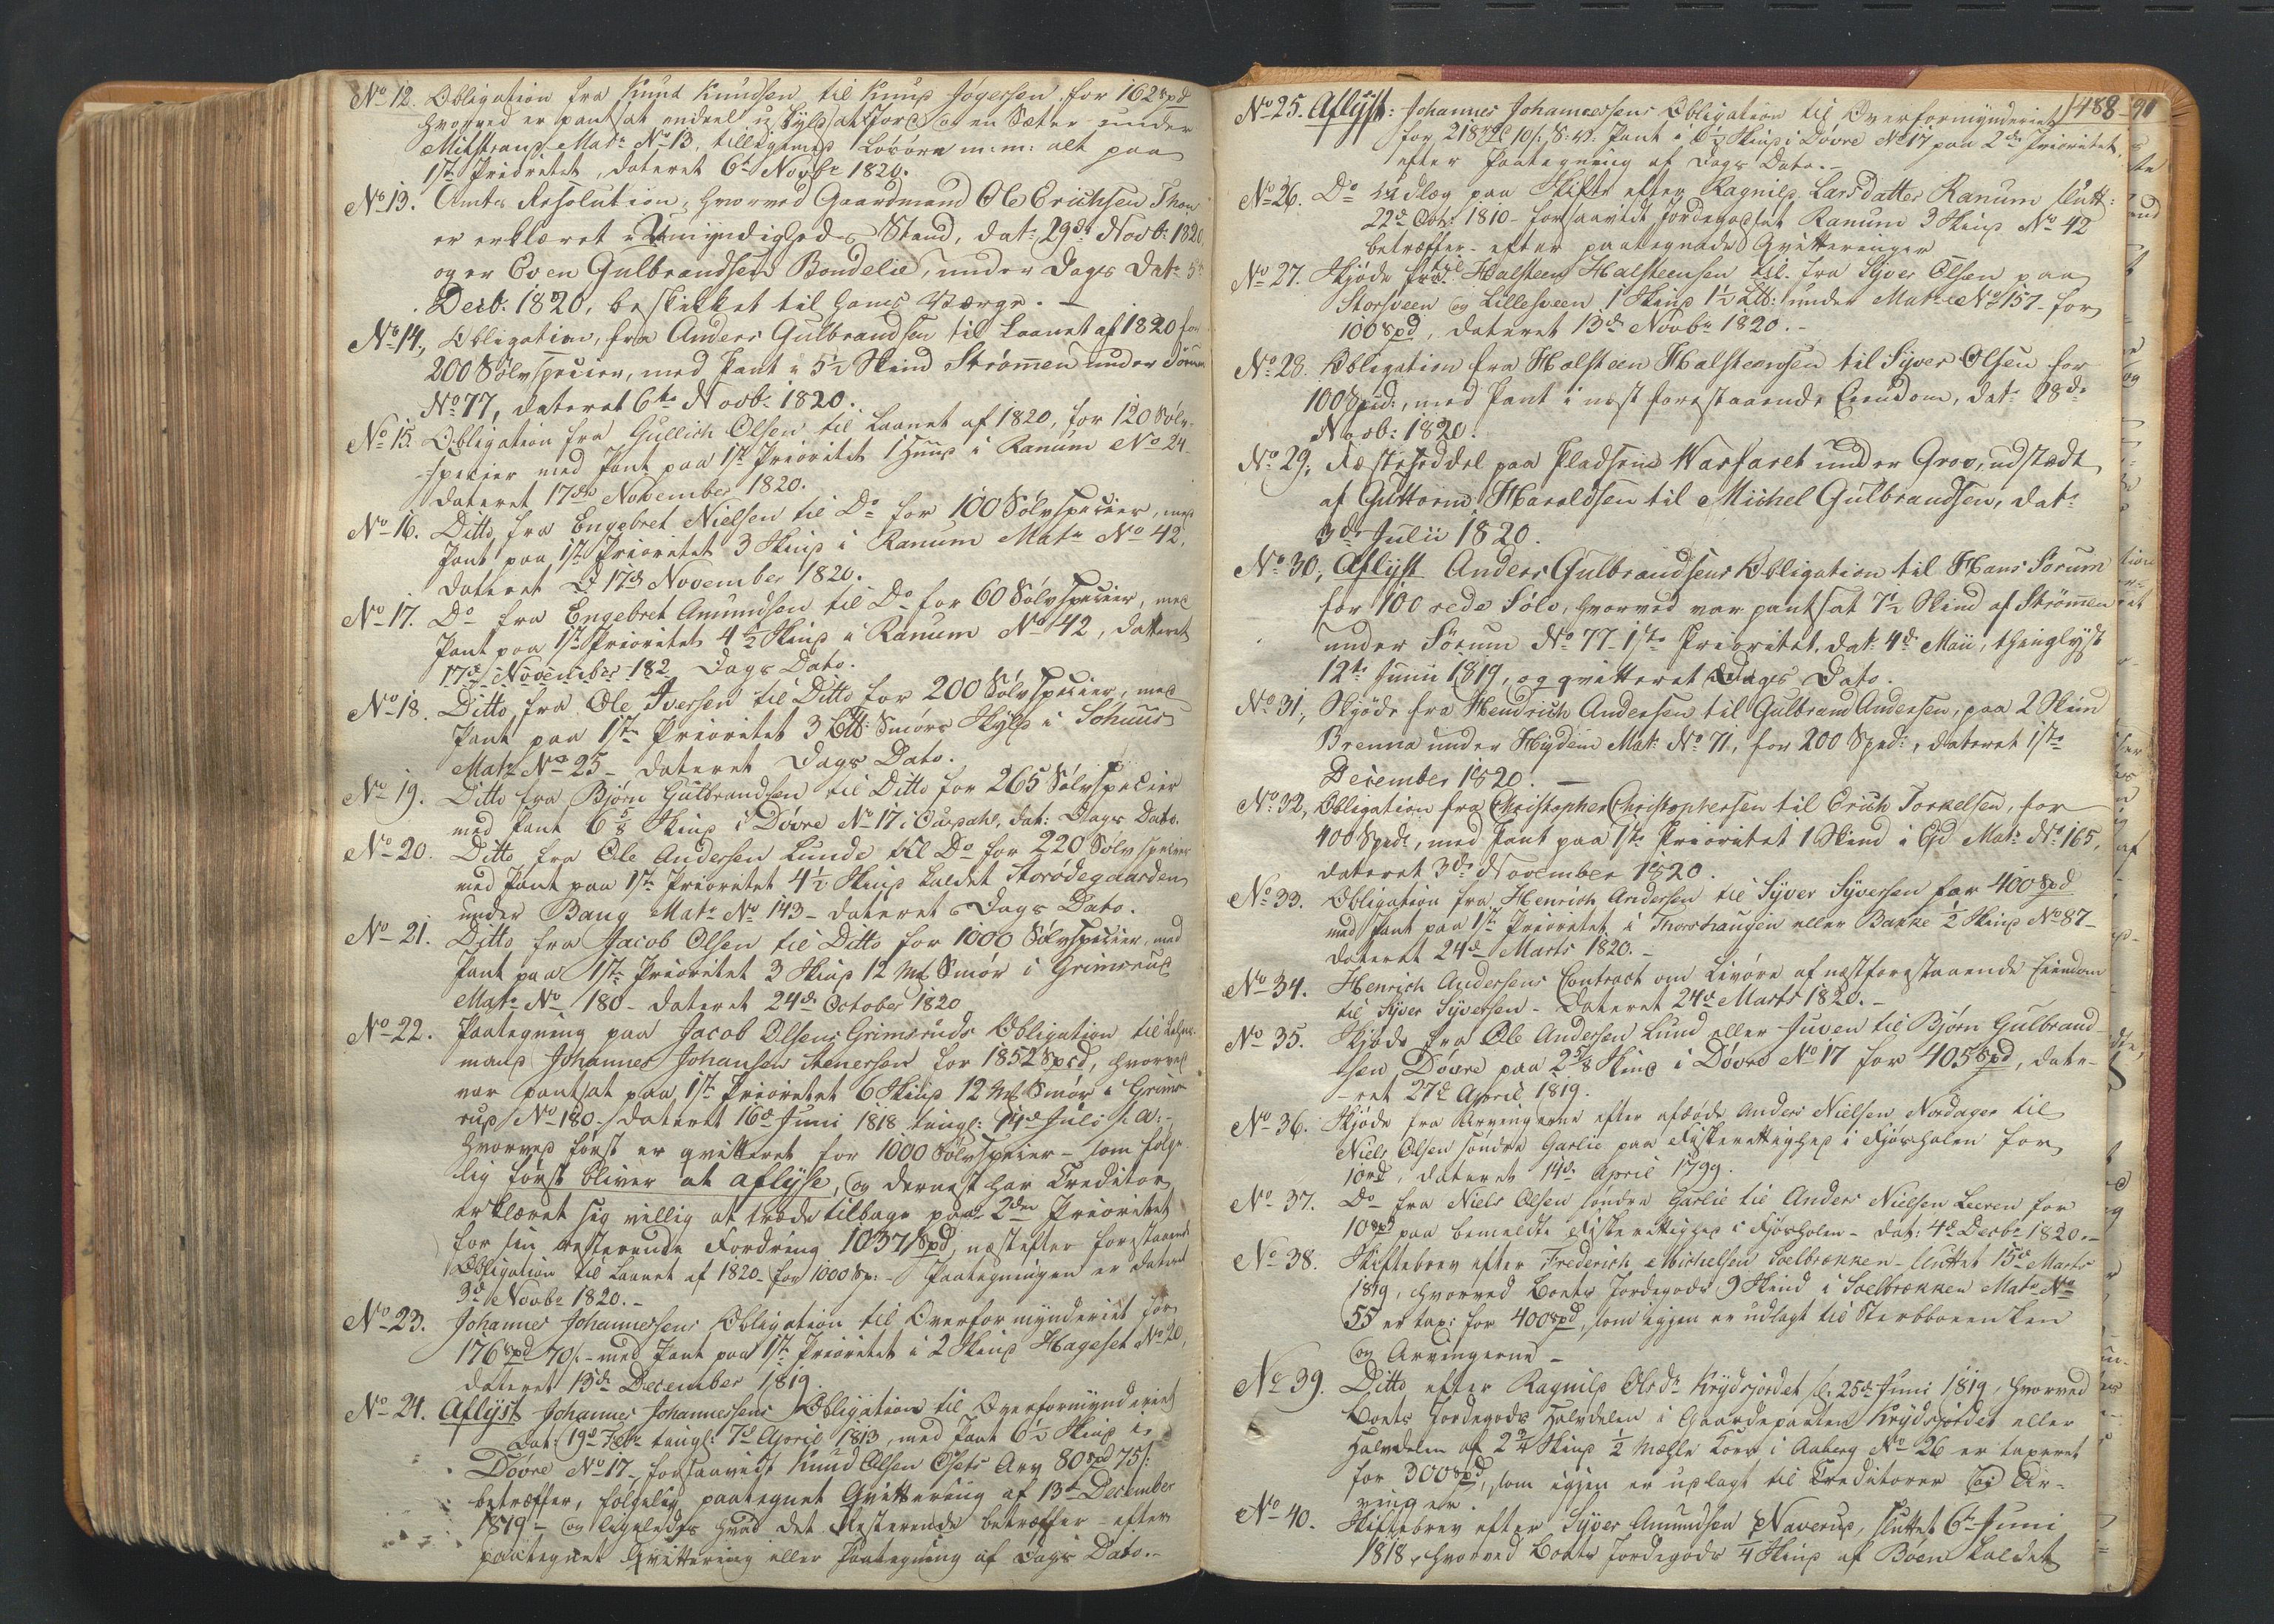 No 12. Obligation fra Knud Knudsen til Knud for 162 Spd
hvorved er pantsat endeel og en Sæter under
Midtstrand Matr: No 13, tilligemed Losøre m: m: alt paa
1ste Prioritet, dateret 6te Novbr 1820.
No 13. Amts Resolution, hvorved Gaardmand Ole Erichsen Thon
er erklæret i Umyndigheds Stand, dat: 29de Novb: 1820
og er Even Gulbrandsen Bondelie, under Dags Dat: 5te
Decb: 1820, beskikket til hans Værge. –
No 14., Obligation, fra Anders Gulbrandsen til Laanet af 1820 for
200 Sølvspecier, med Pant i 5½ Skind Strømen under Sørum
No 77, dateret 6te Novb: 1820.
No 15. Obligation fra Gullich Olsen til Laanet af 1820, for 120 Sølv-
-specier med Pant paa 1ste Prioritet 1 Huud i Ranum No 24
dateret 17de November 1820.
No 16. Ditto fra Engebret Nielsen til Do for 100 Sølvspecier, med
Pant paa 1ste Prioritet 3 Skind i Ranum Matr No 42,
dateret D 17de November 1820.
No 17. Do fra Engebret Amundsen til Do for 60 Sølvspecier, med
Pant paa 1ste Prioritet 4½ Skind i Ranum No 42, datteret
17de November 182 Dags Dato.
No 18. Ditto fra Ole Iversen til Ditto for 200 Sølvspecier, med
Pant paa 1ste Prioritet 3 L℔: Smørs Skyld i Sohuus
Matr No 25 – dateret Dags Dato.
No 19. Ditto fra Bjørn Gulbrandsen til Ditto for 265 Sølvspecier
med Pant 6⅝ Skind i Døvre No 17 i Aurdahl, dat: Dags Dato.
No 20. Ditto fra Ole Andersen Lunde til Do for 220 Sølvspecier
med Pant paa 1ste Prioritet 4½ Skind kaldet Storødegaarden
under Bang Matr No 143 – dateret Dags Dato.
No 21. Ditto fra Jacob Olsen til Ditto for 1000 Sølvspecier, med
Pant paa 1ste Prioritet 3 Skind 12 Mk Smør i Grimsrud
Matr No 180 – dateret 24de October 1820
No 22. Paategning paa Jacob Olsens Grimsruds Obligation til Lehns-
mand Johannes Johansen Stenersen for 1852 Spd, hvorved
var pantsat paa 1ste Prioritet 6 Skind 12 Mk Smør i Grims-
rud /No 180 –/ dateret 16de Juni 1818 tingl: 14de Juli s. a: –
hvorved først er qvitteret for 1000 Sølvspecier – som følge-
lig først bliver at aflyse, og dernest har Creditor
erklæret sig villig at træde tilbage paa 2den Prioritet
for sin resterende Fordring 1037 Spd, næstefter forestaaende
Obligation til Laanet af 1820 – for 1000 Sp: – Paategningen er dateret
3de Novbr 1820. –
No 23. Johannes Johannessens Obligation til Overformynderiet for
176 Spd 70 s. – med Pant paa 1ste Prioritet i 2 Skind Hageset No 20,
dateret 13de December 1819.
No 24. Aflyst Johannes Johannessens Obligation til Overformynderiet
dat: 19de Febr tingl: 7de April 1813, med Pant 6½ Skind i
Døvre No 17 – forsaavidt Knud Olsen Arv 80 Spd 75 s:
betræffer, følgelig paategnet Qvittering af 13de December
1819 – og ligeledes hvad det Resterende betræffer – efter
paategnet Qvittering eller Paategning af Dags Dato. –
1488 – 90
No 25. Aflyst: Johannes Johannessens Obligation til Overformynderiet
for 218 10 s. S: V: Pant i 6½ Skind i Døvre No 17 paa 2de Prioritet,
efter Paategning af Dags Dato. –
No 26. Do Udlæg paa Skifte efter Ragnild Larsdatter Ranum slutt:
22de Oct: 1810 – forsaavidt Jordegodset Ranum 3 Skind No 42
betræffer – efter paategnede Qvitteringer
No 27. Skjøde til Halsteen Halsteensen fra Syver Olsen paa
Storsveen og Lillesveen 1 Skind 1½ L℔: under Matr No 157 – for
100 Spd, dateret 13de Novbr 1820. –
No 28. Obligation fra Halsteen Halsteensen til Syver Olsen for
100 Spd:, med Pant i næst forestaaende Eiendom, dat: 28de
Novb: 1820.
No 29, Fæsteseddel paa Pladsene Warfaret under Grov, udstædt
af Guttorm Haraldsen til Michel Gulbrandsen, dat:
3de Julii 1820.
No 30, Aflyst Anders Gulbrandsens Obligation til Hans Sørum
for 100 rede Sølv, hvorved var pantsat 7½ Skind af Strømen
under Sørum No 77 – 1ste Prioritet, dat: 4de Maii, thinglyst
12te Junii 1819, og qvitteret Dags Dato.
No 31, Skjøde fra Hendrich Andersen til Gulbrand Andersen, paa 2 Skin
Brenna under Hyden Mat: No 71, for 200 Spd:, dateret 1ste
December 1820. –
No 32, Obligation fra Christopher Christophersen til Erich Torkelsen, for
400 Spd:, med Pant paa 1ste Prioritet 1 Skind i Eid Matr: No 165,
dateret 3de November 1820.
No 33. Obligation fra Henrich Andersen til Syver Syversen for 400 Spd
med Pant paa 1ste Prioritet i Thorshaugen eller Bakke ½ Skind No 87 –
dateret 24de Marts 1820. –
No 34. Henrich Andersens Contract om Livøre af næstforestaaende Eiendom
til Syver Syversen – dateret 24de Marts 1820. –
No 35. Skjøde fra Ole Andersen Lund eller Juven til Bjørn Gulbrand-
sen Døvre paa 2⅝ Skind i Døvre No 17 for 405 Spd, date-
-ret 27de April 1819.
No 36. Skjøde fra Arvingerne efter afdøde Anders Nielsen Nordager til
Niels Olsen søndre Garlie paa Fiskerettighed i Fjøsholen for
10 rd, dateret 14de April 1799.
No 37. Do fra Niels Olsen søndre Garlie til Anders Nielsen Leeren for
10 Spd paa bemeldte Fiskerettighed i Fjøsholen – dat: 4de Decbr 1820. –
No 38. Skiftebrev efter Frederich Michelsen Soelbrækken – sluttet 15de Marts
1819, hvorved Boets Jordegods 9 Skind i Soelbrækken Matr No
55 er tax: for 400 Spd, som igjen er udlagt til Sterbboeenken
og Arvingerne –
No 39. Ditto efter Ragnild Olsdr Krydsjordet sl. 25de Juni 1819, hvorved
Boets Jordegods halvdelen i Gaardeparten Krydsjordet eller
halvdelen af 2¾ Skind ½ Mælle Korn i Aaberg No 26 er taxeret
for 300 Spd, som igjen er udlagt til Creditorer og Ar-
vinger.
No 40. Skiftebrev efter Syver Amundsen Naverud, sluttet 6te Juni
1818, hvorved Boets Jordegods ¼ Skind af Bøen kaldet